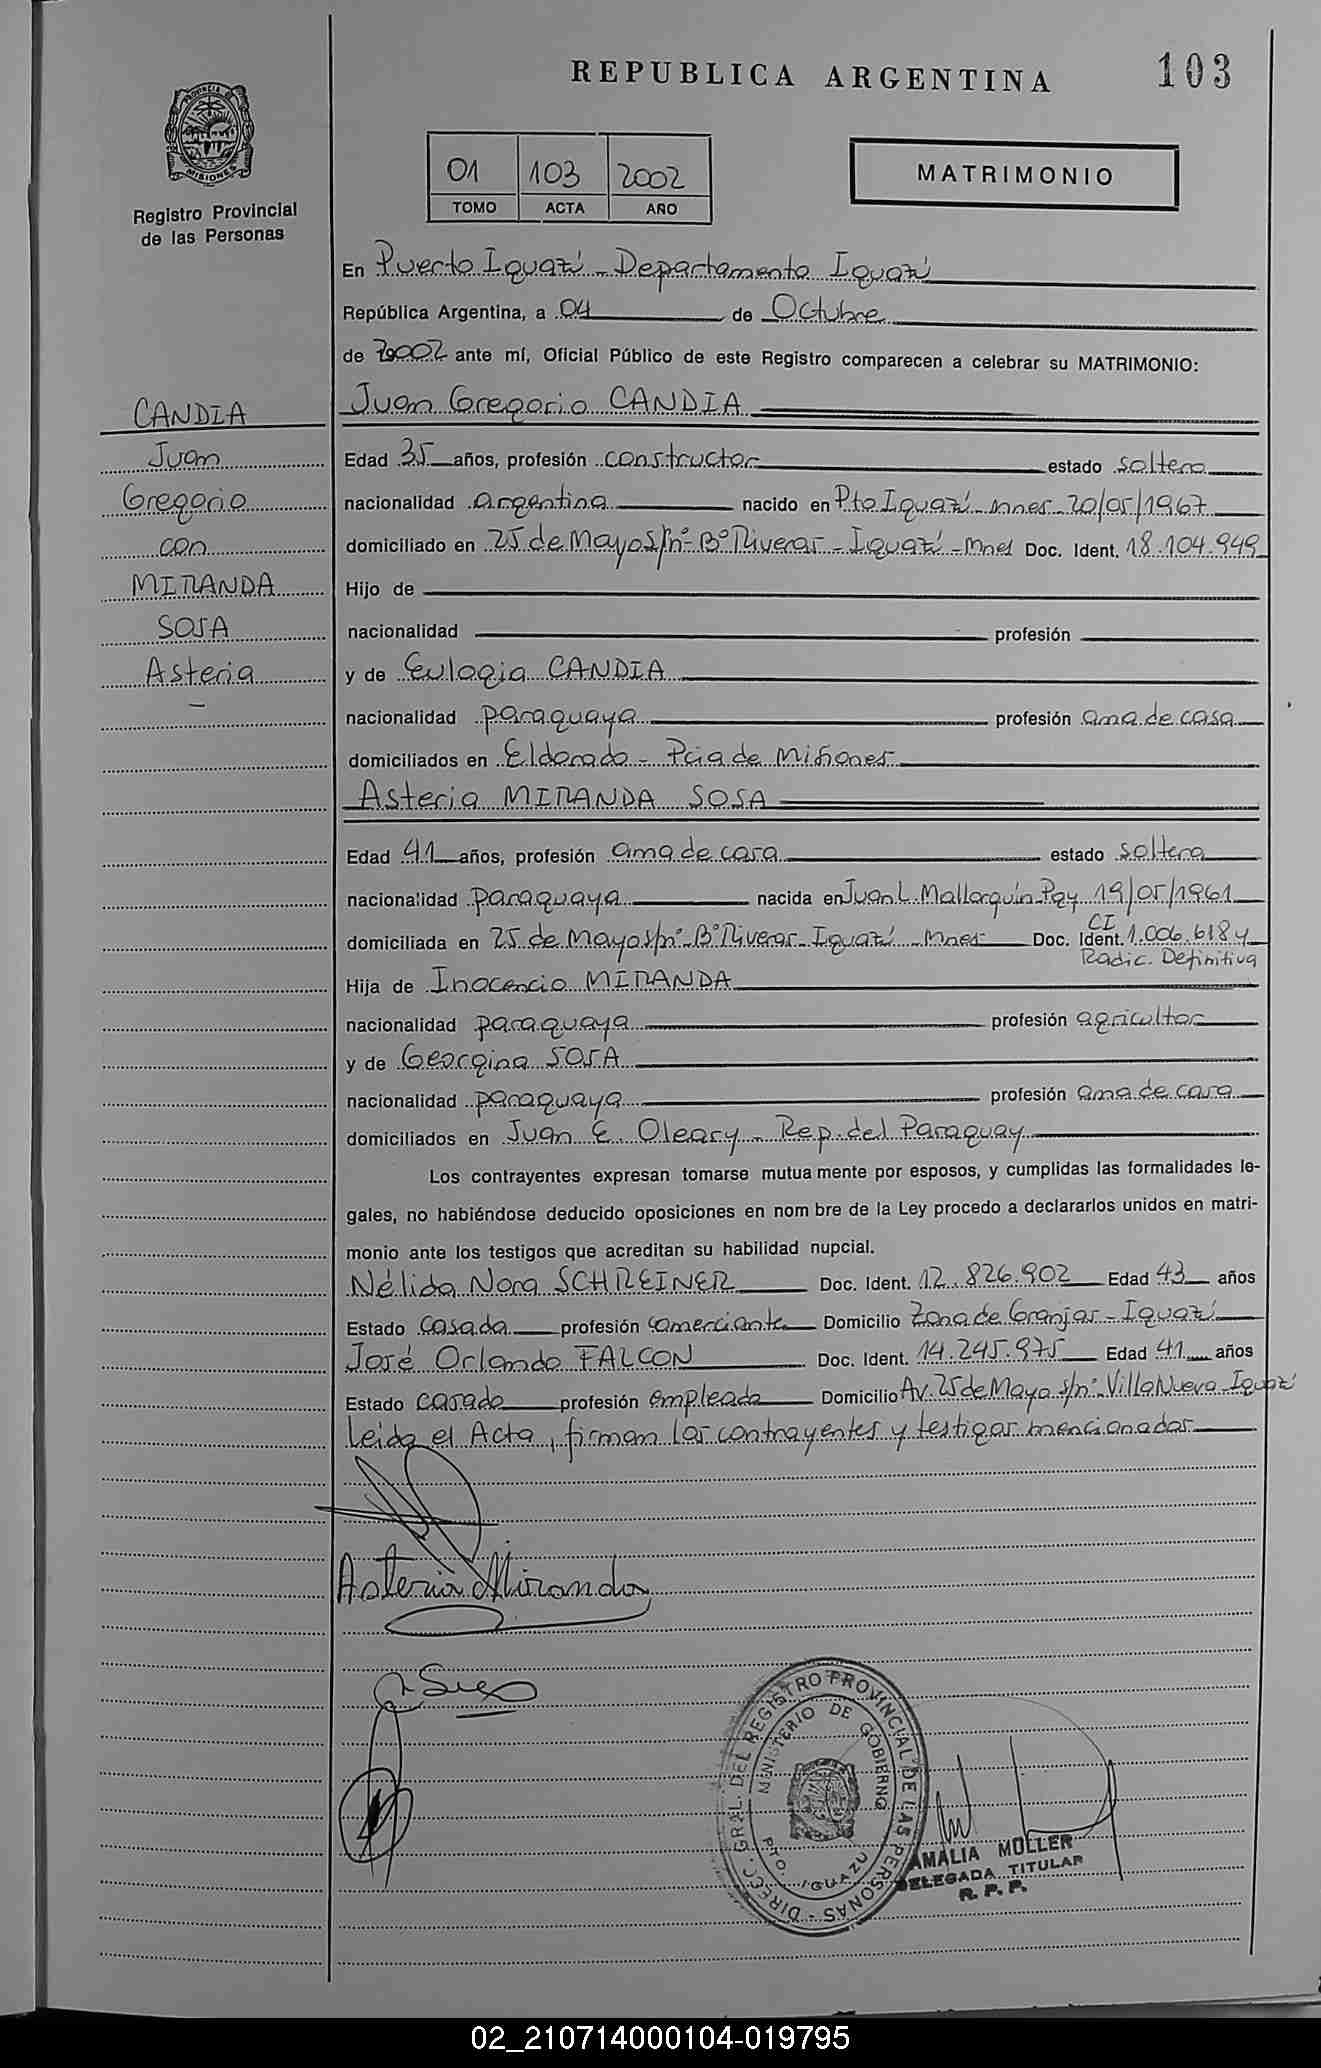 REPUBLICA ARGENTINA
103
PROVINCIA DE
MISIONES
Registro Provincial
de las Personas
01 103 2002
TOMO ACTA AÑO
MATRIMONIO
En Puerto Iguazú - Departamento Iguazú
República Argentina, a 04 de Octubre
de 2002 ante mí, Oficial Público de este Registro comparecen a celebrar su MATRIMONIO:
CANDIA
Juan
Gregorio
con
MIRANDA
SOSA
Asteria
-
Juan Gregorio CANDIA
Edad 35 años, profesión constructor estado soltero
nacionalidad argentina nacido en Pto Iguazú - Mnes - 20/05/1967
domiciliado en 25 de Mayo s/nº - Bº Riveras - Iguazú - Mnes Doc. Ident. 18.104.949
Hijo de
nacionalidad profesión
y de Eulogia CANDIA
nacionalidad paraguaya profesión ama de casa
domiciliados en Eldorado - Pcia de Misiones
Asteria MIRANDA SOSA
Edad 41 años, profesión ama de casa estado soltera
nacionalidad paraguaya nacida en Juan L. Mallorquín - Pgy 19/05/1961
domiciliada en 25 de Mayo s/nº - Bº Riveras - Iguazú - Mnes Doc. Ident. CI 1.006.618 y
Radic. Definitiva
Hija de Inocencio MIRANDA
nacionalidad paraguaya profesión agricultor
y de Georgina SOSA
nacionalidad paraguaya profesión ama de casa
domiciliados en Juan E. Oleary - Rep. del Paraguay
Los contrayentes expresan tomarse mutua mente por esposos, y cumplidas las formalidades le-
gales, no habiéndose deducido oposiciones en nom bre de la Ley procedo a declararlos unidos en matri-
monio ante los testigos que acreditan su habilidad nupcial.
Nélida Nora SCHREINER Doc. Ident. 12.826.902 Edad 43 años
Estado casada profesión comerciante Domicilio Zona de Granjas - Iguazú
José Orlando FALCON Doc. Ident. 14.245.975 Edad 41 años
Estado casado profesión empleado Domicilio Av. 25 de Mayo s/nº - Villa Nueva - Iguazú
Leida el Acta, firman los contrayentes y testigos mencionados
Asteria Miranda
DIRECC. GRAL. DEL REGISTRO PROVINCIAL DE LAS PERSONAS -
MINISTERIO DE GOBIERNO
PTO. IGUAZU
AMALIA MOLLER
DELEGADA TITULAR
R. P. P.
02_210714000104-019795